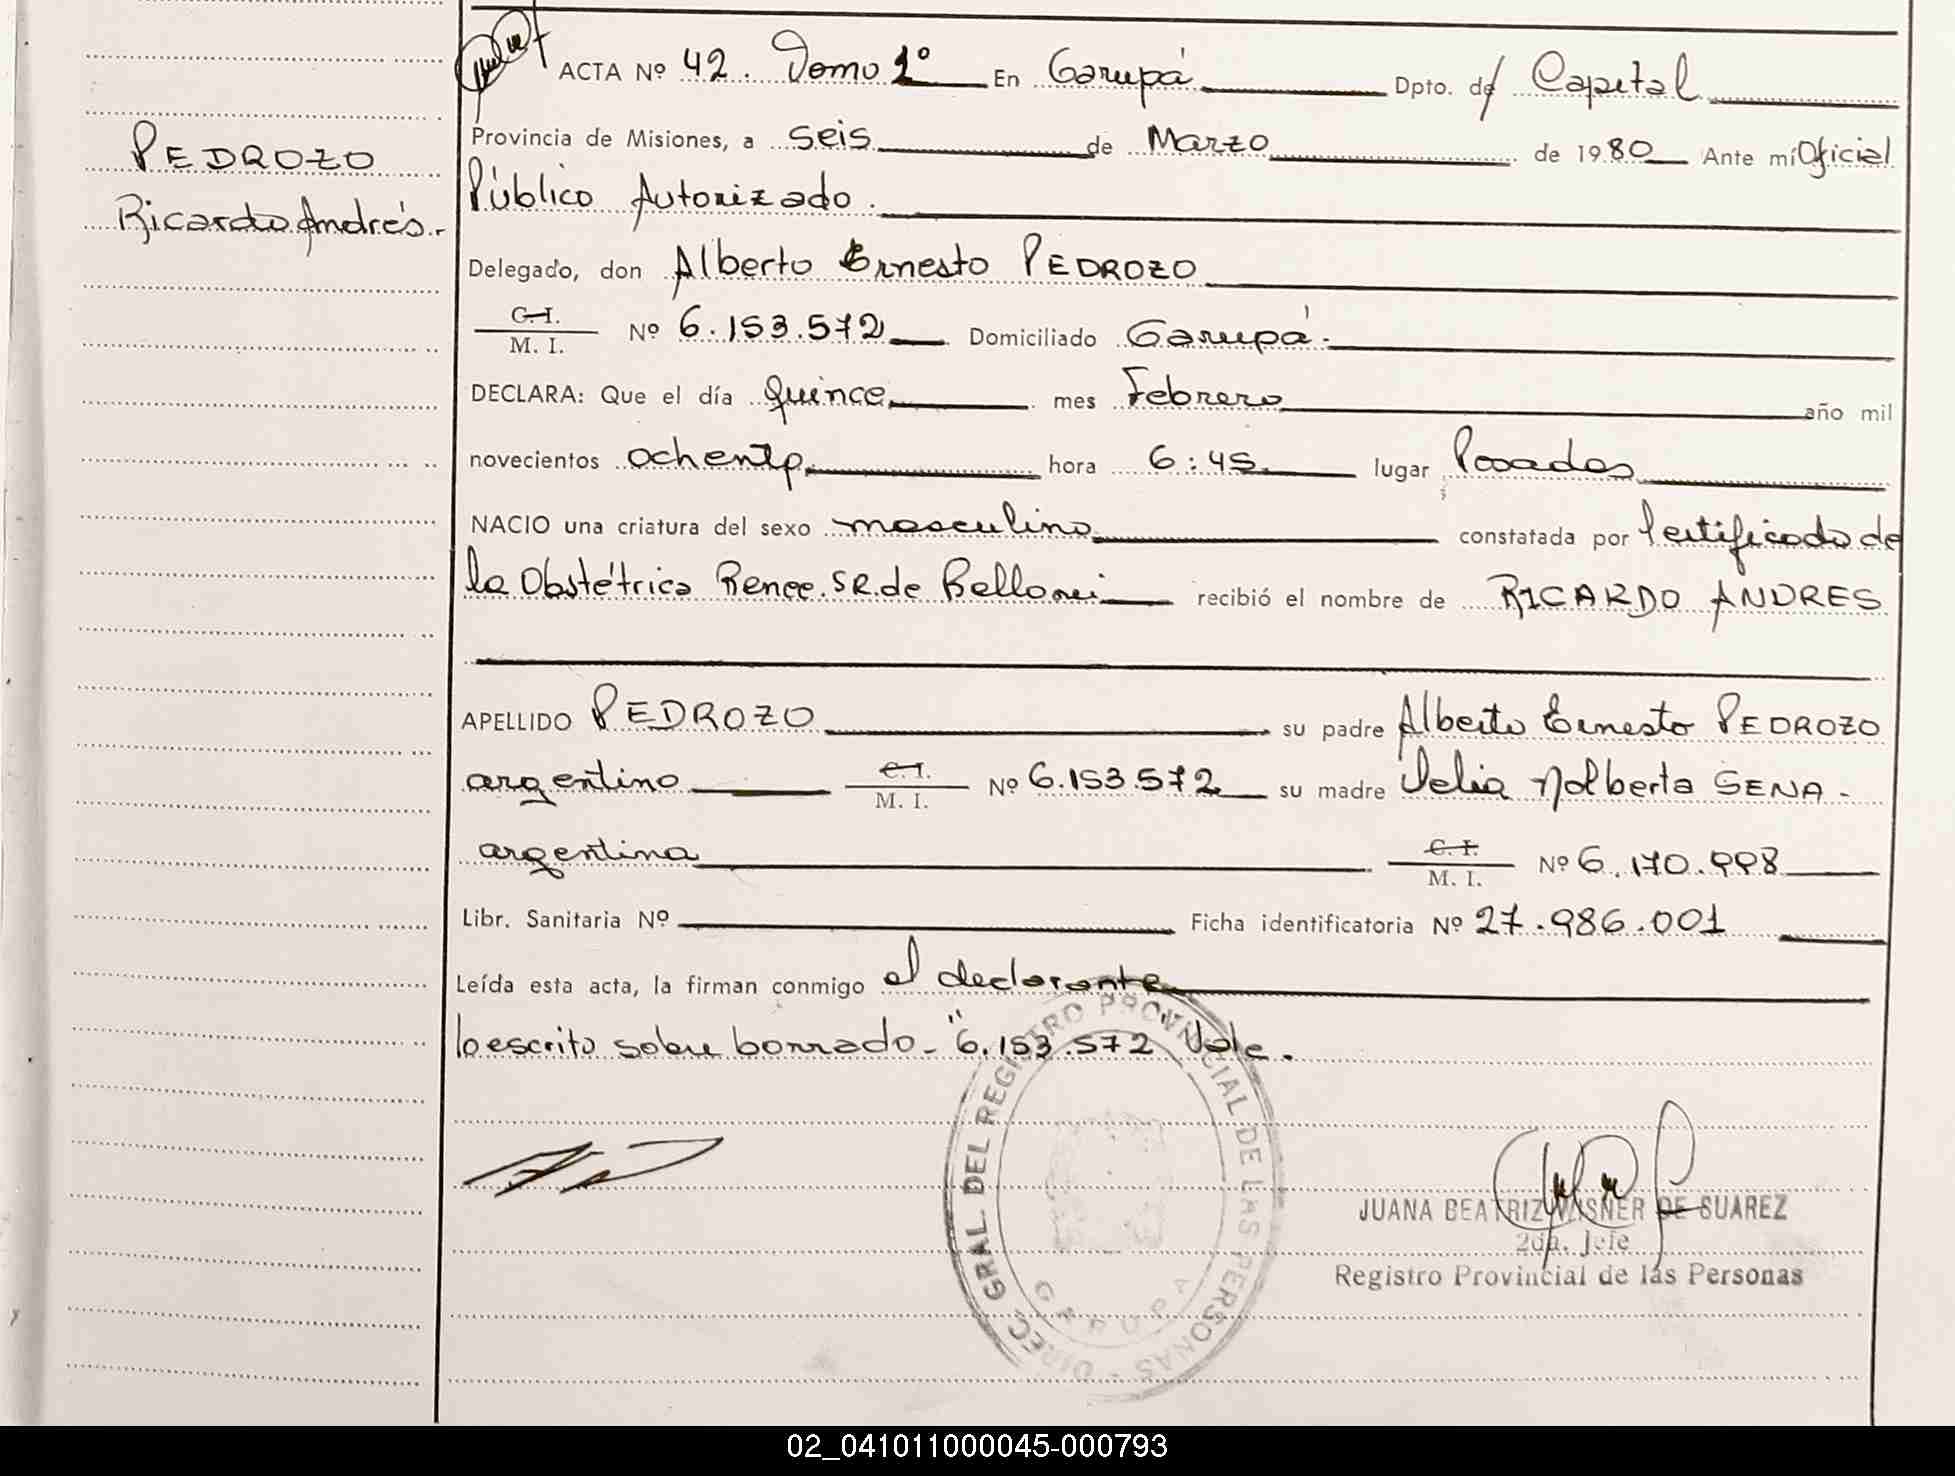 PEDROZO
Ricardo Andrés.-
ACTA Nº 42. Tomo 1º En Garupá Dpto. de Capital
Provincia de Misiones, a seis de Marzo de 1980 Ante mí Oficial
Público Autorizado.
Delegado, don Alberto Ernesto PEDROZO
C.I. M. I. Nº 6.153.572 Domiciliado Garupá.
DECLARA: Que el día quince mes Febrero año mil
novecientos ochenta hora 6:45 lugar Posadas
NACIO una criatura del sexo masculino constatada por Certificado de
la Obstétrica Renee. SR. de Belloni recibió el nombre de RICARDO ANDRES
APELLIDO PEDROZO su padre Alberto Ernesto PEDROZO
argentino C.I. M. I. Nº 6.153.572 su madre Delia Nolberta SENA -
argentina C.I. M. I. Nº 6.170.998
Libr. Sanitaria Nº Ficha identificatoria Nº 27.986.001
Leída esta acta, la firman conmigo el declarante
lo escrito sobre borrado - "6.153.572" Vale.
DIREC. GRAL. DEL REGISTRO PROVINCIAL DE LAS PERSONAS -
GARUPA
JUANA BEATRIZ WASNER DE SUAREZ
2da. Jefe
Registro Provincial de las Personas
02_041011000045-000793